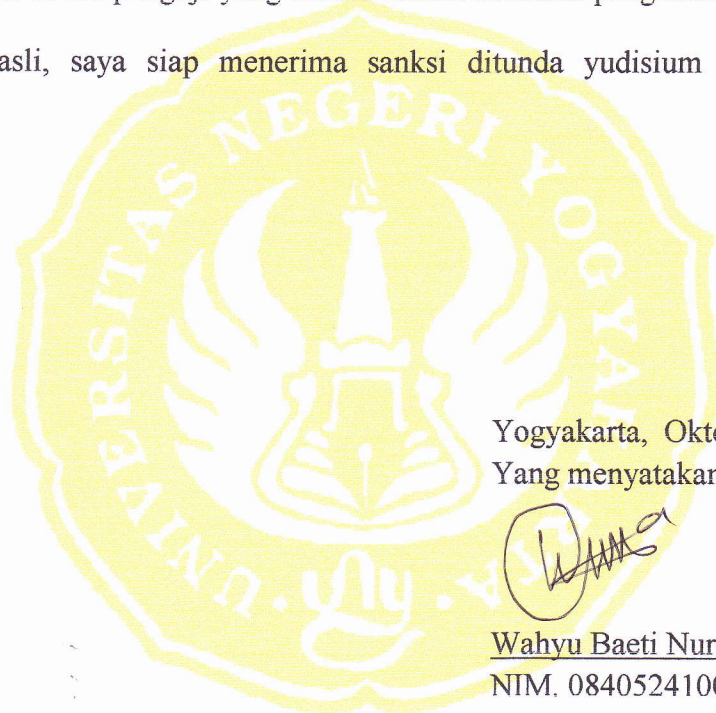 asli, saya siap menerima sanksi ditunda yudisium
UNIVERSITAS NEGERI YOGYAKARTA
Yogyakarta, Okt
Yang menyatakan
Wahyu Baeti Nur
NIM. 084052410